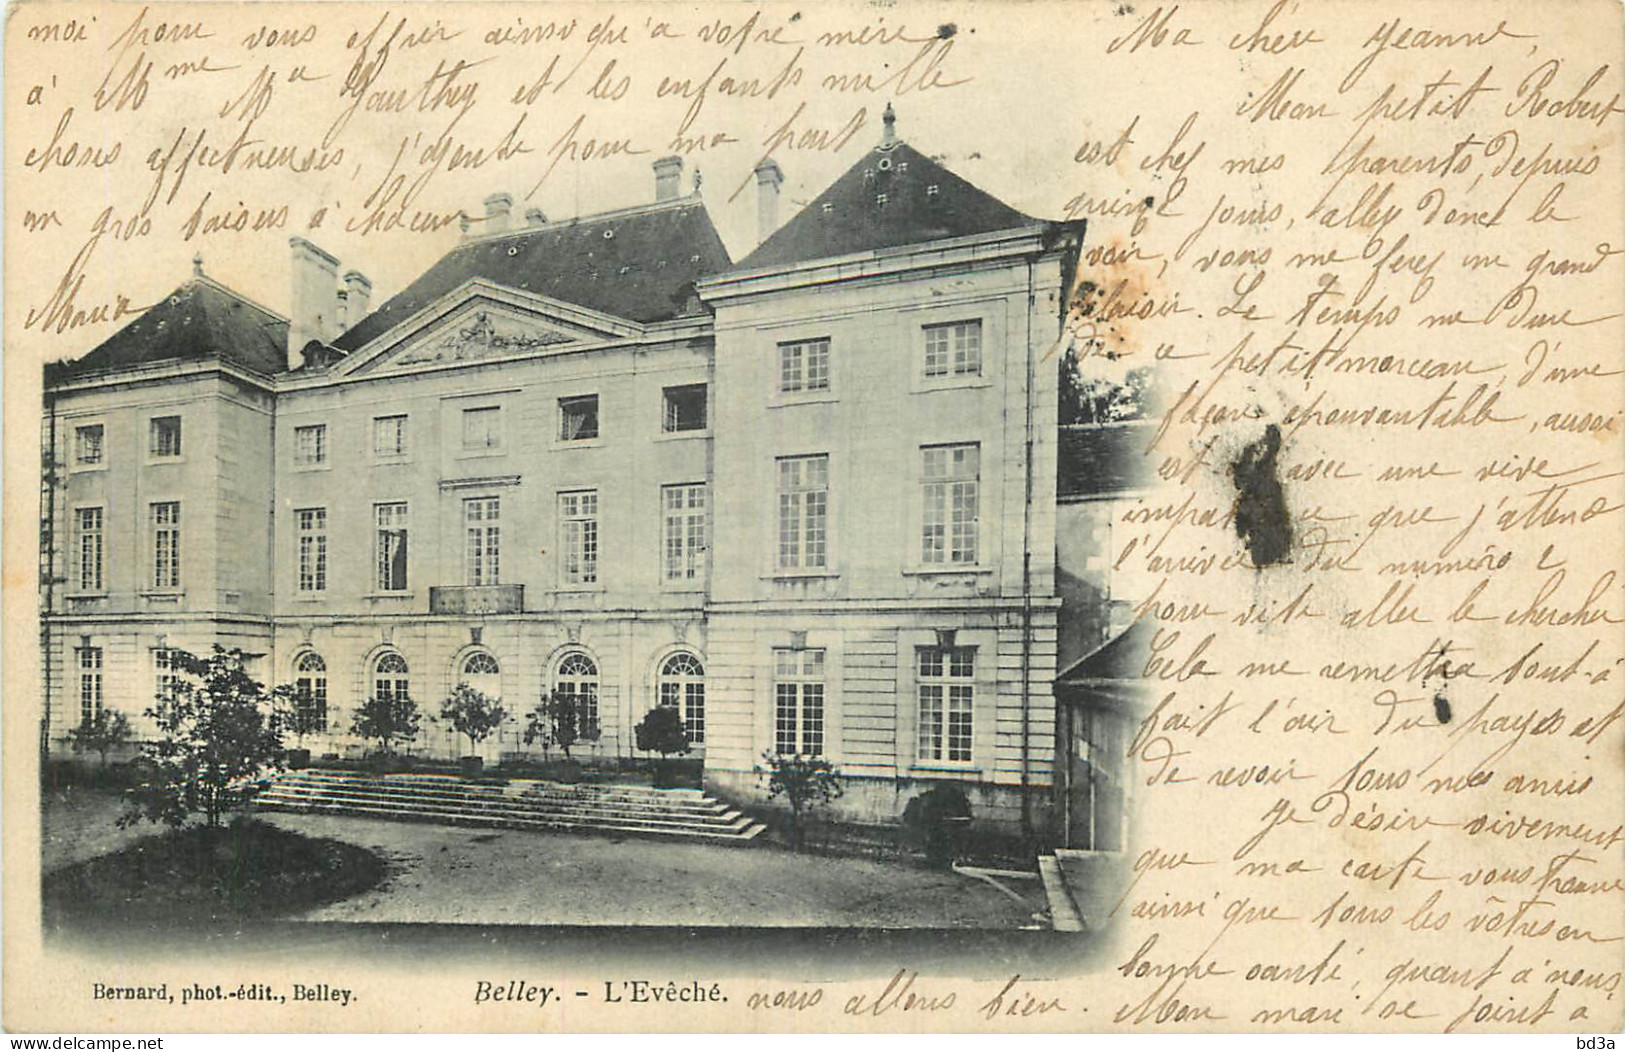 Ma chère Jeanne,
Mon petit Robert
est chez mes parents, depuis
quinze jours, allez donc le
voir, vous me ferez un grand
plaisir. Le temps me dure
de ce petit morceau, d'une
façon épouvantable, aussi
est avec une vive
impat ce que j'attend
l'arrivée du numéro 2
pour vite aller le chercher
Cela me remettra tout-à
fait l'air du pays et
de revoir tous nos amis
Je désire vivement
que ma carte vous trouve
ainsi que tous les vôtres en
bonne santé, quant à nous,
nous allons bien.
Mon mari se joint à
moi pour vous offrir ainsi qu'à votre mère
à Mme Gauthey et les enfants mille
choses affectueuses, j'ajoute pour ma part
un gros baisers à chacun
Maria
Bernard, phot.-édit., Belley.
Belley. - L'Evêché.
bd3a
delcampe.net